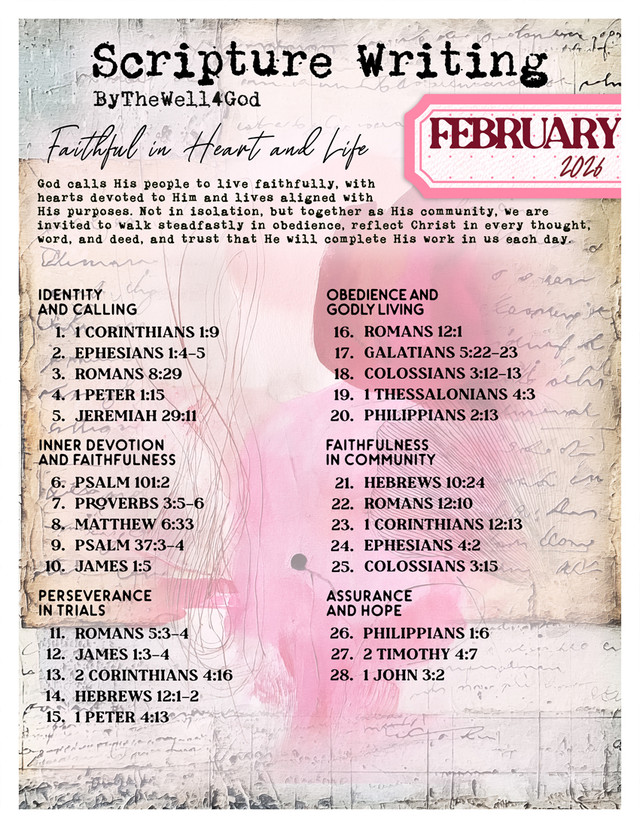 Scripture Writing
ByTheWell4God
FEBRUARY
2026
Faithful in Heart and Life
God calls His people to live faithfully, with
hearts devoted to Him and lives aligned with
His purposes. Not in isolation, but together as His community, we are
invited to walk steadfastly in obedience, reflect Christ in every thought,
word, and deed, and trust that He will complete His work in us each day.
IDENTITY
AND CALLING
1. 1 CORINTHIANS 1:9
2. EPHESIANS 1:4-5
3. ROMANS 8:29
4. 1 PETER 1:15
5. JEREMIAH 29:11
INNER DEVOTION
AND FAITHFULNESS
6. PSALM 101:2
7. PROVERBS 3:5-6
8. MATTHEW 6:33
9. PSALM 37:3-4
10. JAMES 1:5
PERSEVERANCE
IN TRIALS
11. ROMANS 5:3-4
12. JAMES 1:3-4
13. 2 CORINTHIANS 4:16
14. HEBREWS 12:1-2
15. 1 PETER 4:13
OBEDIENCE AND
GODLY LIVING
16. ROMANS 12:1
17. GALATIANS 5:22-23
18. COLOSSIANS 3:12-13
19. 1 THESSALONIANS 4:3
20. PHILIPPIANS 2:13
FAITHFULNESS
IN COMMUNITY
21. HEBREWS 10:24
22. ROMANS 12:10
23. 1 CORINTHIANS 12:13
24. EPHESIANS 4:2
25. COLOSSIANS 3:15
ASSURANCE
AND HOPE
26. PHILIPPIANS 1:6
27. 2 TIMOTHY 4:7
28. 1 JOHN 3:2